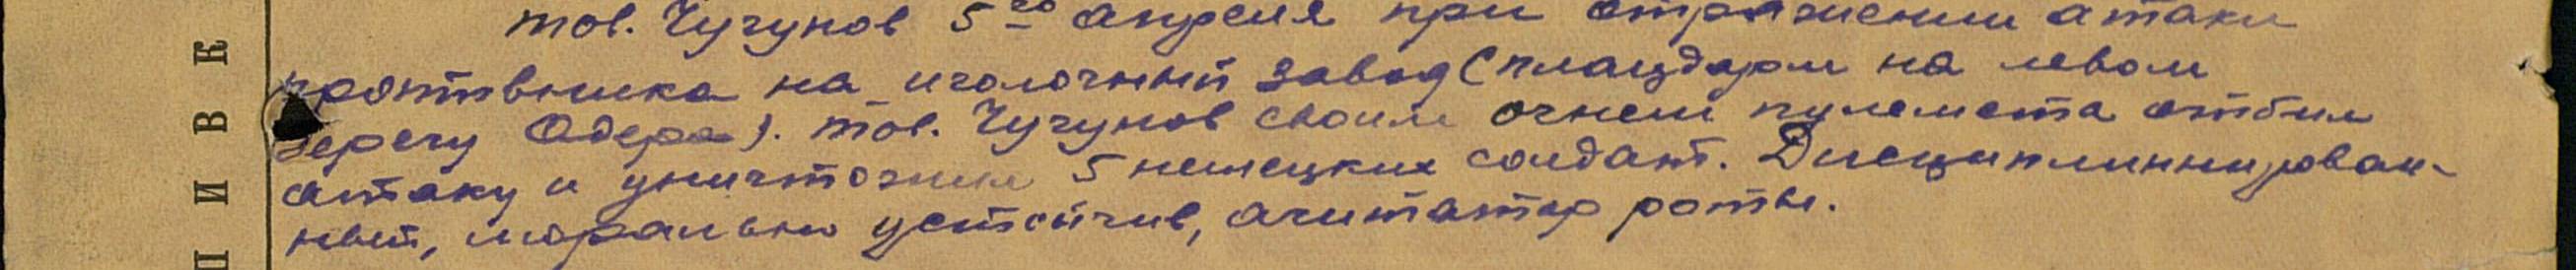 тов. Чугунов 5го апреля при отражении атаки
противника на иголочный завод (плацдарм на левом
берегу Одера). тов. Чугунов своим огнем пулемета отбил
атаку и уничтожил 5 немецких солдат. Дисциплиннирован-
ный, морально устойчив, агитатор роты.
П И В К